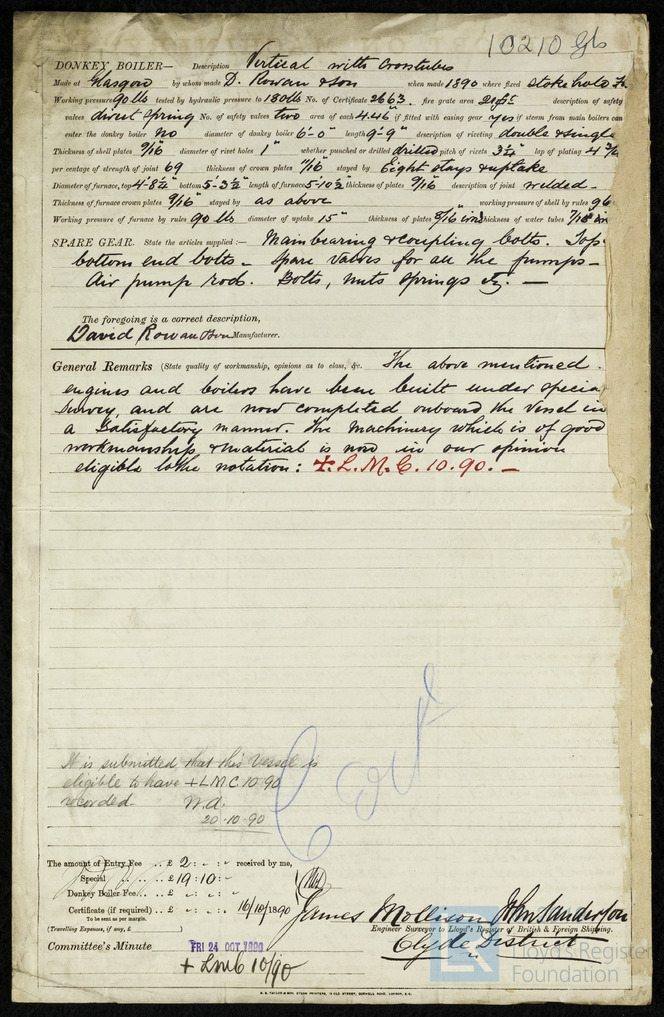 10210 Gls
DONKEY BOILER— Description Vertical with Crosstubes
Made at Glasgow by whom made D. Rowan & Son when made 1890 where fixed stokehold
Working pressure 90 lbs tested by hydraulic pressure to 180 lbs No. of Certificate 2663 fire grate area description of safety
valves direct spring No. of safety valves two area of each 4.46 if fitted with easing gear yes if steam from main boilers can
enter the donkey boiler no diameter of donkey boiler 6'-0" length 9'-9" description of riveting double & single
Thickness of shell plates 9/16 diameter of rivet holes 1" whether punched or drilled drilled pitch of rivets 3 1/4" lap of plating 4 3/4
per centage of strength of joint 69 thickness of crown plates 11/16 stayed by Eight stays & uptake
Diameter of furnace, top 4'-8 1/4" bottom 5'-3 1/2" length of furnace 5'-10 1/2" thickness of plates 9/16" description of joint welded -
Thickness of furnace crown plates 9/16" stayed by as above working pressure of shell by rules 96
Working pressure of furnace by rules 90 lbs diameter of uptake 15" thickness of plates 5/16 ins thickness of water tubes 7/16 in
SPARE GEAR. State the articles supplied :— Main bearing & coupling bolts. Top
bottom end bolts - Spare valves for all the pumps -
Air pump rods. Bolts, nuts springs etc. —
The foregoing is a correct description,
David Rowan & Son Manufacturer.
General Remarks (State quality of workmanship, opinions as to class, &c. The above mentioned
engines and boilers have been built under special
survey, and are now completed onboard the vessel in
a satisfactory manner. The machinery which is of good
workmanship & material is now in our opinion
eligible to the notation : +. L. M. C. 10. 90. —
It is submitted that this Vessel is
eligible to have + L M C 10.90
recorded W.A.
20.10.90
The amount of Entry Fee .. £ 2 : - : - received by me,
Special .. .. £ 19 : 10 : -
Donkey Boiler Fee .. £ : :
Certificate (if required) .. £ - : - : - 16/10/1890
To be sent as per margin.
(Travelling Expenses, if any, £ )
James Mollison John Sanderson
Engineer Surveyor to Lloyd's Register of British & Foreign Shipping.
Clyde District
Committee's Minute FRI 24 OCT 1890
+ LMC 10/90
Lloyd's Register
Foundation